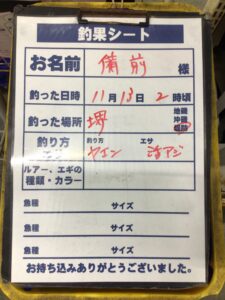 釣果シート
お名前 備前 様
釣った日時 11月13日 2時頃
釣った場所 堺 地磯 沖磯 堤防
釣り方 釣り方 ウエン エサ 活アジ
ルアー、エギの種類・カラー
魚種 サイズ
魚種 サイズ
魚種 サイズ
お持ち込みありがとうございました。